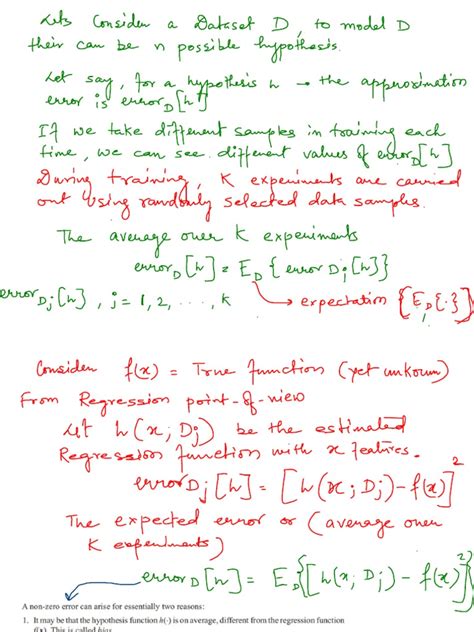 Lets Consider a Dataset D, to model D
their can be n possible hypothesis.
Let say, for a hypothesis h → the approximation
error is error_D[h]
If we take different samples in training each
time, we can see different values of error_D[h]
During training, K experiments are carried
out using randomly selected data samples.
The average over K experiments
error_D[h] = E_D{error_Dj[h]}
error_Dj[h], j = 1, 2, ..., K → expectation {E_D{·}}
Consider f(x) = True function (yet unknown)
From Regression point-of-view
Let h(x; Dj) be the estimated
Regression function with x features.
error_Dj[h] = [h(x; Dj) - f(x)]^2
The expected error or (average over
K experiments)
error_D[h] = E_D{[h(x; Dj) - f(x)]^2}
A non-zero error can arise for essentially two reasons:
1. It may be that the hypothesis function h(·) is on average, different from the regression function
f(x). This is called bias.